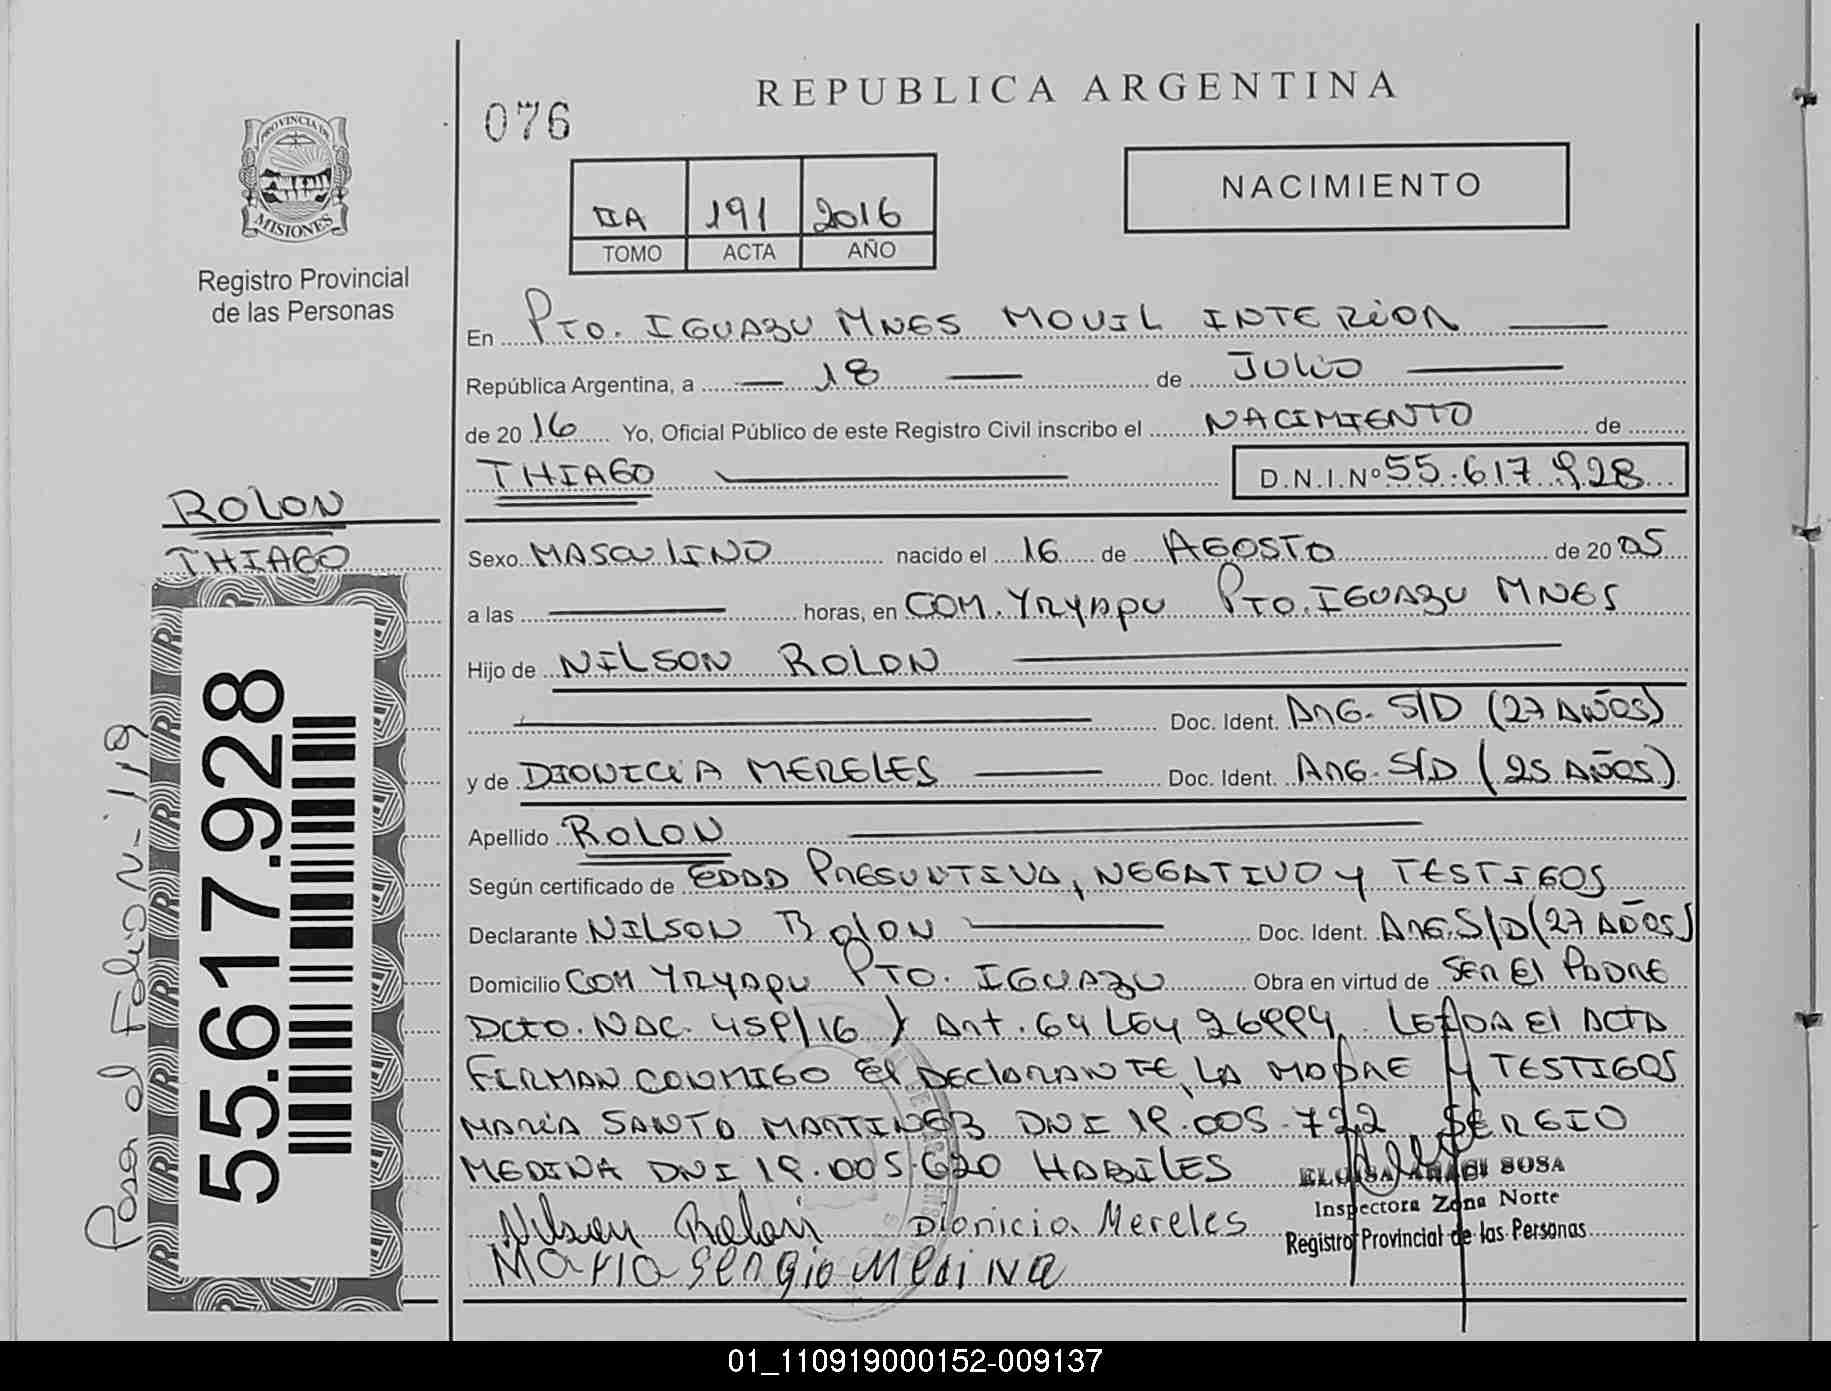 REPUBLICA ARGENTINA
076
PROVINCIA DE
MISIONES
Registro Provincial
de las Personas
IIA 191 2016
TOMO ACTA AÑO
NACIMIENTO
En PTO. IGUAZU MNES MOVIL INTERIOR
República Argentina, a 18 de JULIO
de 2016 Yo, Oficial Público de este Registro Civil inscribo el NACIMIENTO de
THIAGO D.N.I.Nº 55.617.928
ROLON
THIAGO
Sexo MASCULINO nacido el 16 de AGOSTO de 2005
a las horas, en COM. YRYAPU PTO. IGUAZU MNES
Hijo de NILSON ROLON
Doc. Ident. ARG. S/D (27 AÑOS)
y de DIONICIA MERELES Doc. Ident. ARG. S/D (25 AÑOS)
Apellido ROLON
Según certificado de EDAD PRESUNTIVA, NEGATIVO Y TESTIGOS
Declarante NILSON ROLON Doc. Ident. ARG. S/D (27 AÑOS)
Domicilio COM YRYAPU PTO. IGUAZU Obra en virtud de SER EL PADRE
DCTO. NAC. 459/16 Y ART. 64 LEY 26994. LEIDA EL ACTA
FIRMAN CONMIGO EL DECLARANTE, LA MADRE Y TESTIGOS
MARIA SANTO MARTINEZ DNI 19.005.722 SERGIO
MEDINA DNI 19.005.620 HABILES
ELOISA ARACI SOSA
Inspectora Zona Norte
Registro Provincial de las Personas
Nilson Rolon Dionicia Mereles
Maria Sergio Medina
55.617.928
Pasa al Folio N- 119
01_110919000152-009137